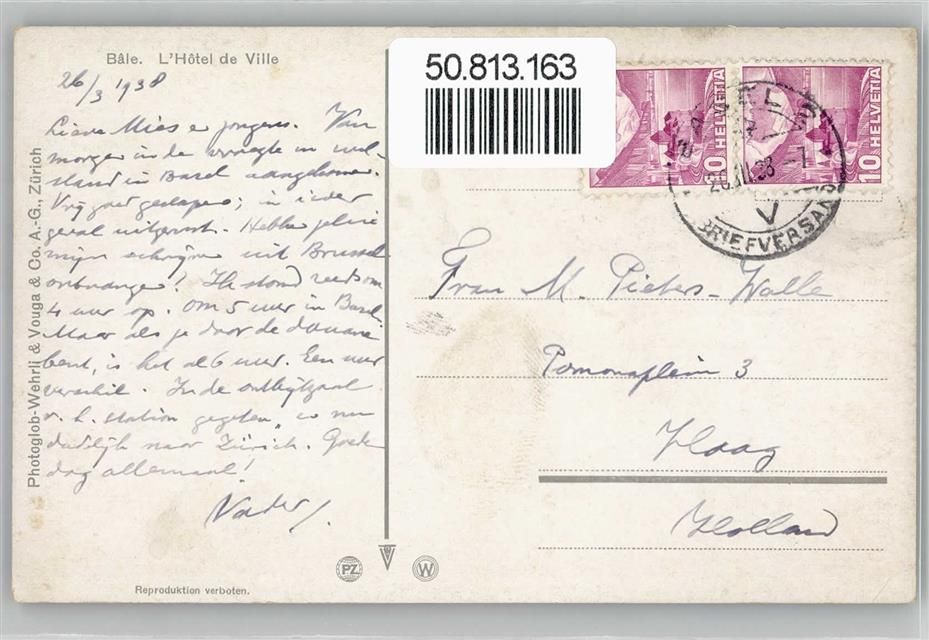 Bâle. L'Hôtel de Ville
26/3 1938
Lieve Mies e jongens. Van
morgen in de vroegte in
Basel aangekomen.
Vrij goed geslapen; in ieder
geval uitgerust. Hebben jelui
mijn schrijven uit Brussel
ontvangen? Ik stond reeds om
4 uur op. Om 5 uur in Basel.
Maar als je door de douane
bent, is het al 6 uur. Een uur
verschil. In de ontbijtzaal
v. h. station gegeten, en nu
dadelijk naar Zürich. Goede
dag allemaal!
Vader/.
Photoglob-Wehrli & Vouga & Co. A.-G., Zürich
Reproduktion verboten.
PZ
W
50.813.163
10 HELVETIA
10 HELVETIA
BASEL 2
26.III.38.-7
V
BRIEFVERSAND
Frau M. Pieters-Walle
Pomonaplein 3
Haag
Holland